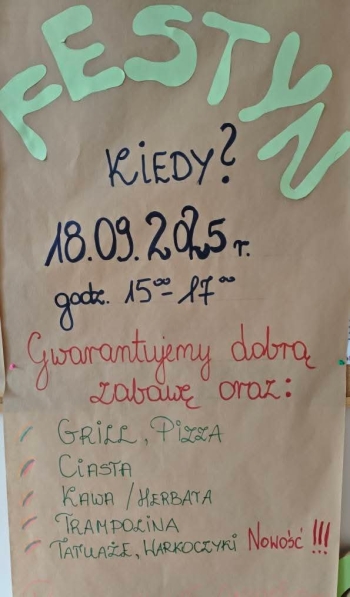 FESTYN
KIEDY?
18.09.2025 r.
godz. 15⁰⁰ - 17⁰⁰
Gwarantujemy dobrą
zabawę oraz:
GRILL, PIZZA
CIASTA
KAWA / HERBATA
TRAMPOLINA
TATUAŻE, WARKOCZYKI Nowość !!!